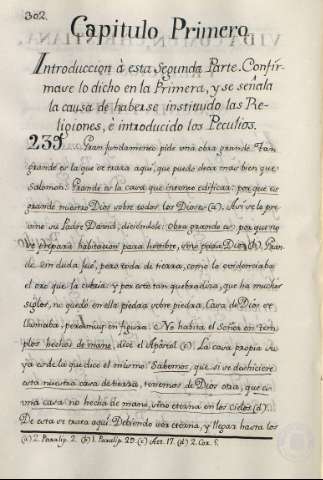 302.
Capitulo Primero
Introduccion à esta Segunda Parte. Confír-
mase lo dicho en la Primera, y se señala
la causa de haberse instituido las Re-
ligiones, è introducido los Peculios.
239 Gran fundamento pide una obra grande. Tan
grande es la que se trara aquí, que puedo decir mas bien que
Salomon: Grande es la casa que intento edificar: por que es
grande nuestro Dios sobre todos los Dioses (a). Asi se lo pre-
vino su Padre David, diciendole: Obra grande es; por que no
se prepara habitacion para hombre, sino para Dios (b). Gran-
de sin duda fué, pero toda de tierra, como lo evidenciaba
el oro que la cubria: y por esto tan quebradiza, que ha muchos
siglos, no quedó en ella piedra sobre piedra. Casa de Dios se
llamaba, pero muy en figura. No habita el Señor en Tem-
plos hechos de mano, dice el Apostol (c). La casa propia su-
ya es de la que dice el mismo: Sabemos, que si se deshiciere
esta nuestra casa de tierra, tenemos de Dios otra, que es
una casa no hecha de mano, sino eterna en los cielos (d).
De esta se trata aquí. Debiendo ser eterna, y llegar hasta los
(a) 2. Paralip. 2. (b) 1. Paralip. 29. (c) Act. 17. (d) 2. Cor. 5.